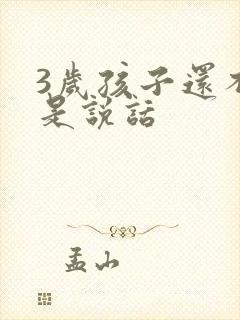 3歲孩子還不
是說話
孟山